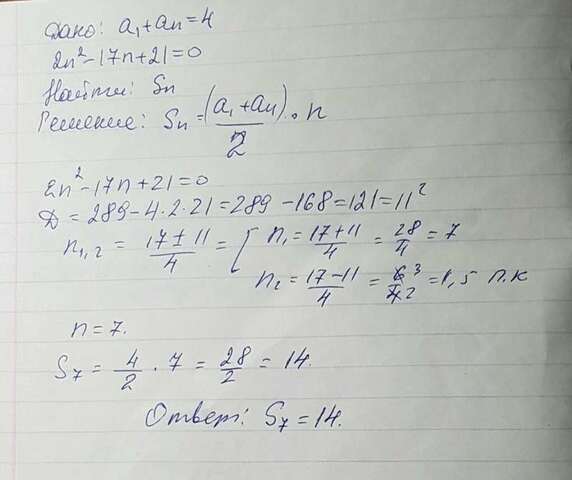 Дано: a₁+aₙ=4
2n²-17n+21=0
Найти: Sₙ
Решение: Sₙ=(a₁+aₙ)/2 · n
2n²-17n+21=0
Д=289-4·2·21=289-168=121=11²
n₁,₂ = (17±11)/4 = [ n₁=(17+11)/4 = 28/4 = 7
n₂=(17-11)/4 = 6³/4₂ = 1,5 п.к
n=7.
S₇ = 4/2 · 7 = 28/2 = 14.
Ответ: S₇=14.